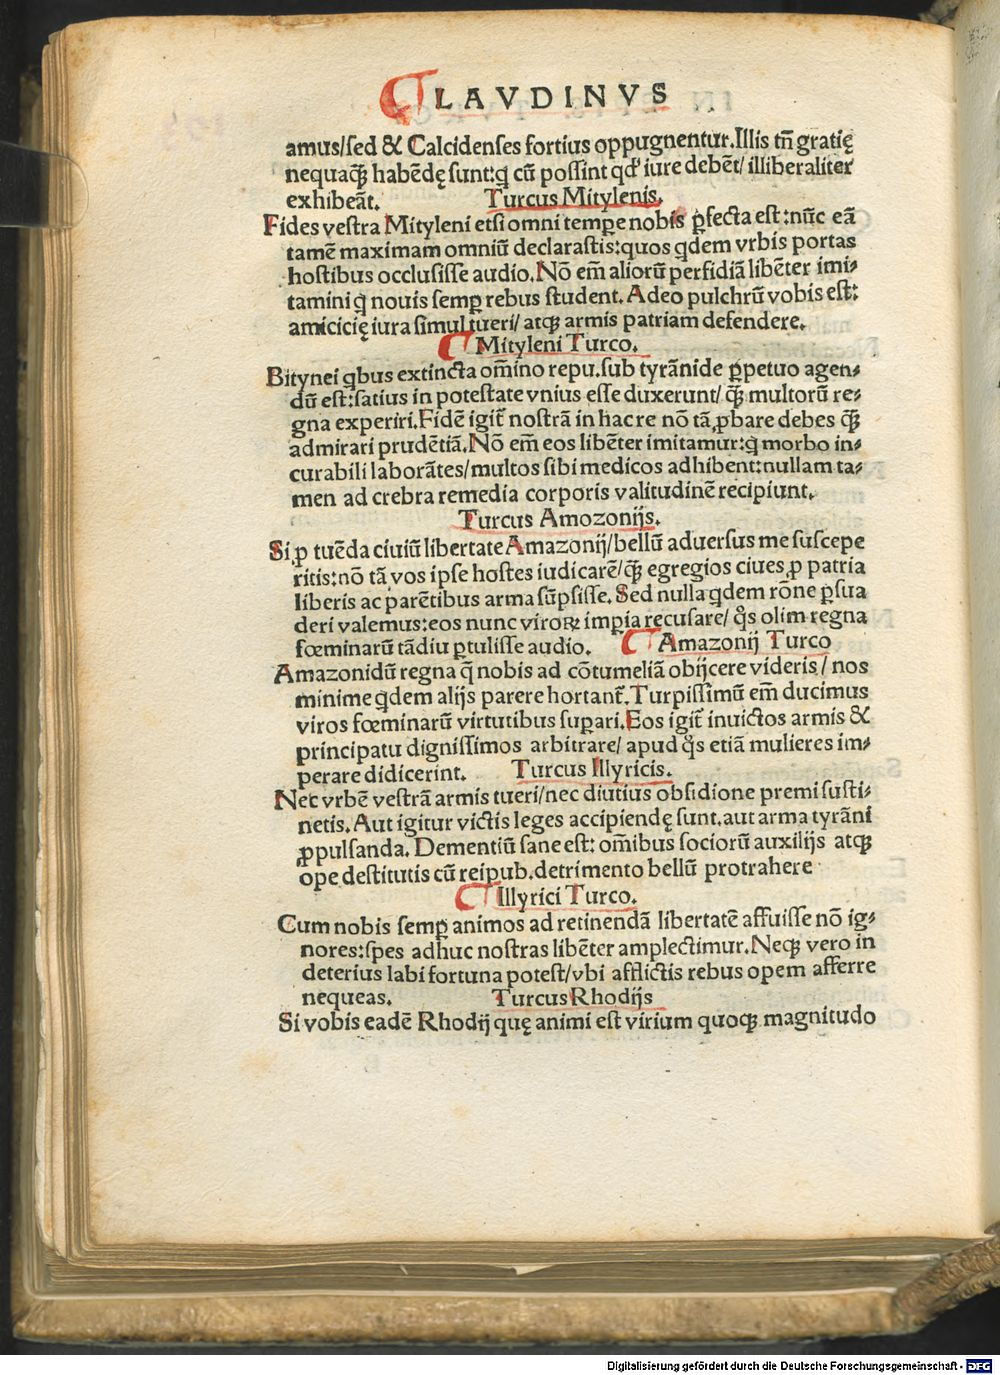 LAVDINVS
amus/sed & Calcidenses fortius oppugnentur. Illis tñ gratię
nequaꝗ̃ habēdę sunt: q̨ cũ possint qđ iure debēt/ illiberaliter
exhibeāt. Turcus Mitylenis.
Fides vestra Mityleni etsi omni tempe nobis ꝑfecta est: nũc eā
tamē maximam omniũ declarastis: quos qdem vrbis portas
hostibus occlusisse audio. Nõ em̃ aliorũ perfidiā libēter imi⸗
tamini q̨ nouis semꝑ rebus student. Adeo pulchrũ vobis est:
amicicię iura simul tueri/ atqꝫ armis patriam defendere.
Mityleni Turco.
Bitynei qbus extincta om̃ino repu. sub tyrānide ꝑpetuo agen⸗
dũ est: satius in potestate vnius esse duxerunt/ ꝗ̃ multorũ re⸗
gna experiri. Fidē igit̃ nostrā in hac re nõ tā ꝓbare debes ꝗ̃
admirari prudētiā. Nõ em̃ eos libēter imitamur: q̨ morbo in⸗
curabili laborātes/ multos sibi medicos adhibent: nullam ta⸗
men ad crebra remedia corporis valitudinē recipiunt.
Turcus Amozonijs.
Si ꝓ tuēda ciuiũ libertate Amazonij/ bellũ aduersus me suscepe
ritis: nõ tā vos ipse hostes iudicarē/ ꝗ̃ egregios ciues, ꝓ patria
liberis ac parētibus arma sũpsisse. Sed nulla qdem rõne ꝑsua
deri valemus: eos nunc viroꝝ impia recusare/ qs olim regna
fœminarũ tādiu ꝑtulisse audio. Amazonij Turco
Amazonidũ regna q̃ nobis ad cõtumeliā obijcere videris/ nos
minime qdem alijs parere hortant̃. Turpissimũ em̃ ducimus
viros fœminarũ virtutibus supari. Eos igit̃ inuictos armis &
principatu dignissimos arbitrare/ apud qs etiā mulieres im⸗
perare didicerint. Turcus Illyricis.
Nec vrbē vestrā armis tueri/ nec diutius obsidione premi susti⸗
netis. Aut igitur victis leges accipiendę sunt. aut arma tyrāni
ꝓpulsanda. Dementiũ sane est: om̃ibus sociorũ auxilijs atqꝫ
ope destitutis cũ reipub. detrimento bellũ protrahere
Illyrici Turco.
Cum nobis semꝑ animos ad retinendā libertatē affuisse nõ ig⸗
nores: spes adhuc nostras libēter amplectimur. Neqꝫ vero in
deterius labi fortuna potest/ vbi afflictis rebus opem afferre
nequeas. Turcus Rhodijs
Si vobis eadē Rhodij quę animi est virium quoqꝫ magnitudo
Digitalisierung gefördert durch die Deutsche Forschungsgemeinschaft - DFG